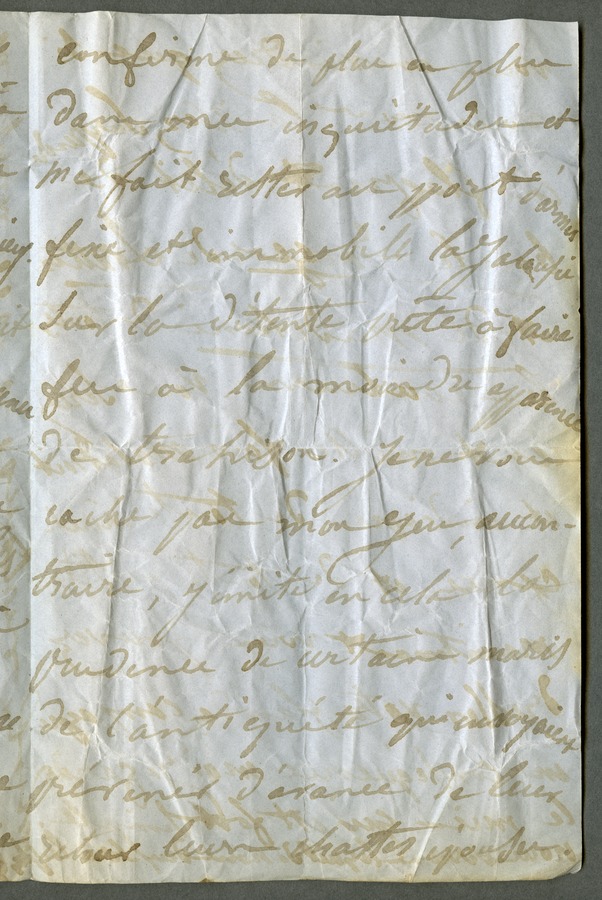 confirme de plus en plus
dans mes inquiétudes et
me fait rester au port d'armes
fixe et immobile la Jalousie
sur la détente prète à faire
feu à la moindre apparence
de trahison. Je ne vous
cache pas mon jeu, aucon-
traire, j'imite en cela la
prudence de certains maris
de l'antiquité qui envoyaient
prevenir d'avance de leur
retour leurs chastes épouses.